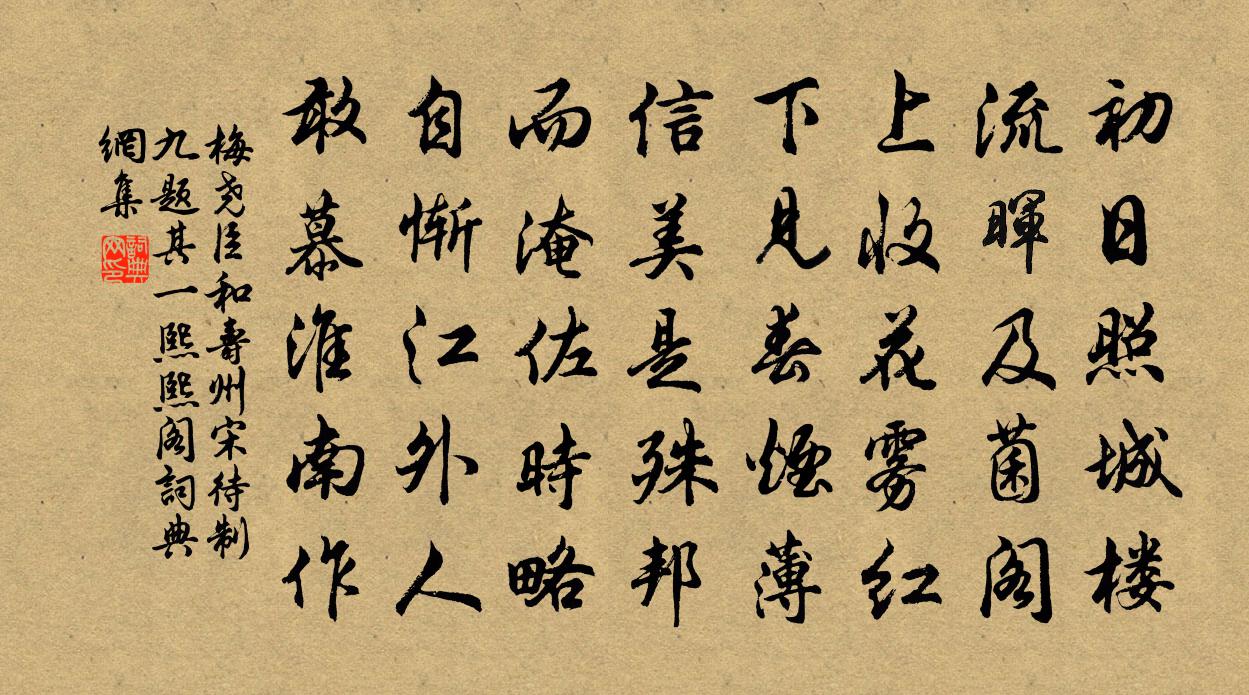 初日照城楼
流暉及菌阁
上收花雾红
下見春煙薄
信美是殊邦
而淹佐時略
自惭江外人
敢慕淮南作
梅尧臣和寿州宋待制
九题其一熙熙阁詞典
網集
詞典网印